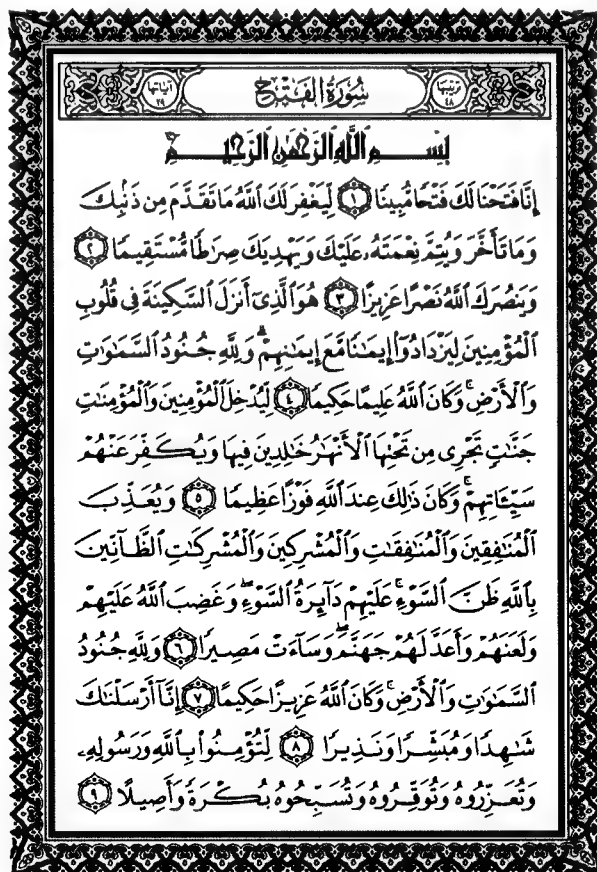 ترتيبها ٤٨ سُورَةُ الفَتْحِ آياتها ٢٩
بِسْمِ اللَّهِ الرَّحْمَٰنِ الرَّحِيمِ
إِنَّا فَتَحْنَا لَكَ فَتْحًا مُّبِينًا ١ لِّيَغْفِرَ لَكَ ٱللَّهُ مَا تَقَدَّمَ مِن ذَنۢبِكَ
وَمَا تَأَخَّرَ وَيُتِمَّ نِعْمَتَهُۥ عَلَيْكَ وَيَهْدِيَكَ صِرَٰطًا مُّسْتَقِيمًا ٢
وَيَنصُرَكَ ٱللَّهُ نَصْرًا عَزِيزًا ٣ هُوَ ٱلَّذِىٓ أَنزَلَ ٱلسَّكِينَةَ فِى قُلُوبِ
ٱلْمُؤْمِنِينَ لِيَزْدَادُوٓا۟ إِيمَٰنًا مَّعَ إِيمَٰنِهِمْ ۗ وَلِلَّهِ جُنُودُ ٱلسَّمَٰوَٰتِ
وَٱلْأَرْضِ ۚ وَكَانَ ٱللَّهُ عَلِيمًا حَكِيمًا ٤ لِّيُدْخِلَ ٱلْمُؤْمِنِينَ وَٱلْمُؤْمِنَٰتِ
جَنَّٰتٍ تَجْرِى مِن تَحْتِهَا ٱلْأَنْهَٰرُ خَٰلِدِينَ فِيهَا وَيُكَفِّرَ عَنْهُمْ
سَيِّـَٔاتِهِمْ ۚ وَكَانَ ذَٰلِكَ عِندَ ٱللَّهِ فَوْزًا عَظِيمًا ٥ وَيُعَذِّبَ
ٱلْمُنَٰفِقِينَ وَٱلْمُنَٰفِقَٰتِ وَٱلْمُشْرِكِينَ وَٱلْمُشْرِكَٰتِ ٱلظَّآنِّينَ
بِٱللَّهِ ظَنَّ ٱلسَّوْءِ ۚ عَلَيْهِمْ دَآئِرَةُ ٱلسَّوْءِ ۖ وَغَضِبَ ٱللَّهُ عَلَيْهِمْ
وَلَعَنَهُمْ وَأَعَدَّ لَهُمْ جَهَنَّمَ ۖ وَسَآءَتْ مَصِيرًا ٦ وَلِلَّهِ جُنُودُ
ٱلسَّمَٰوَٰتِ وَٱلْأَرْضِ ۚ وَكَانَ ٱللَّهُ عَزِيزًا حَكِيمًا ٧ إِنَّآ أَرْسَلْنَٰكَ
شَٰهِدًا وَمُبَشِّرًا وَنَذِيرًا ٨ لِّتُؤْمِنُوا۟ بِٱللَّهِ وَرَسُولِهِۦ
وَتُعَزِّرُوهُ وَتُوَقِّرُوهُ وَتُسَبِّحُوهُ بُكْرَةً وَأَصِيلًا ٩